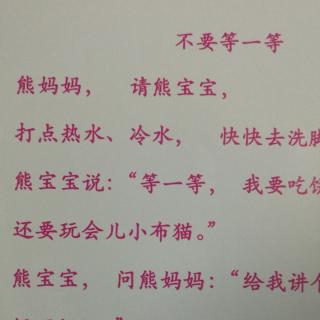 不要等一等
熊妈妈， 请熊宝宝，
打点热水、冷水， 快快去洗脚
熊宝宝说：“等一等， 我要吃
还要玩会儿小布猫。”
熊宝宝， 问熊妈妈：“给我讲